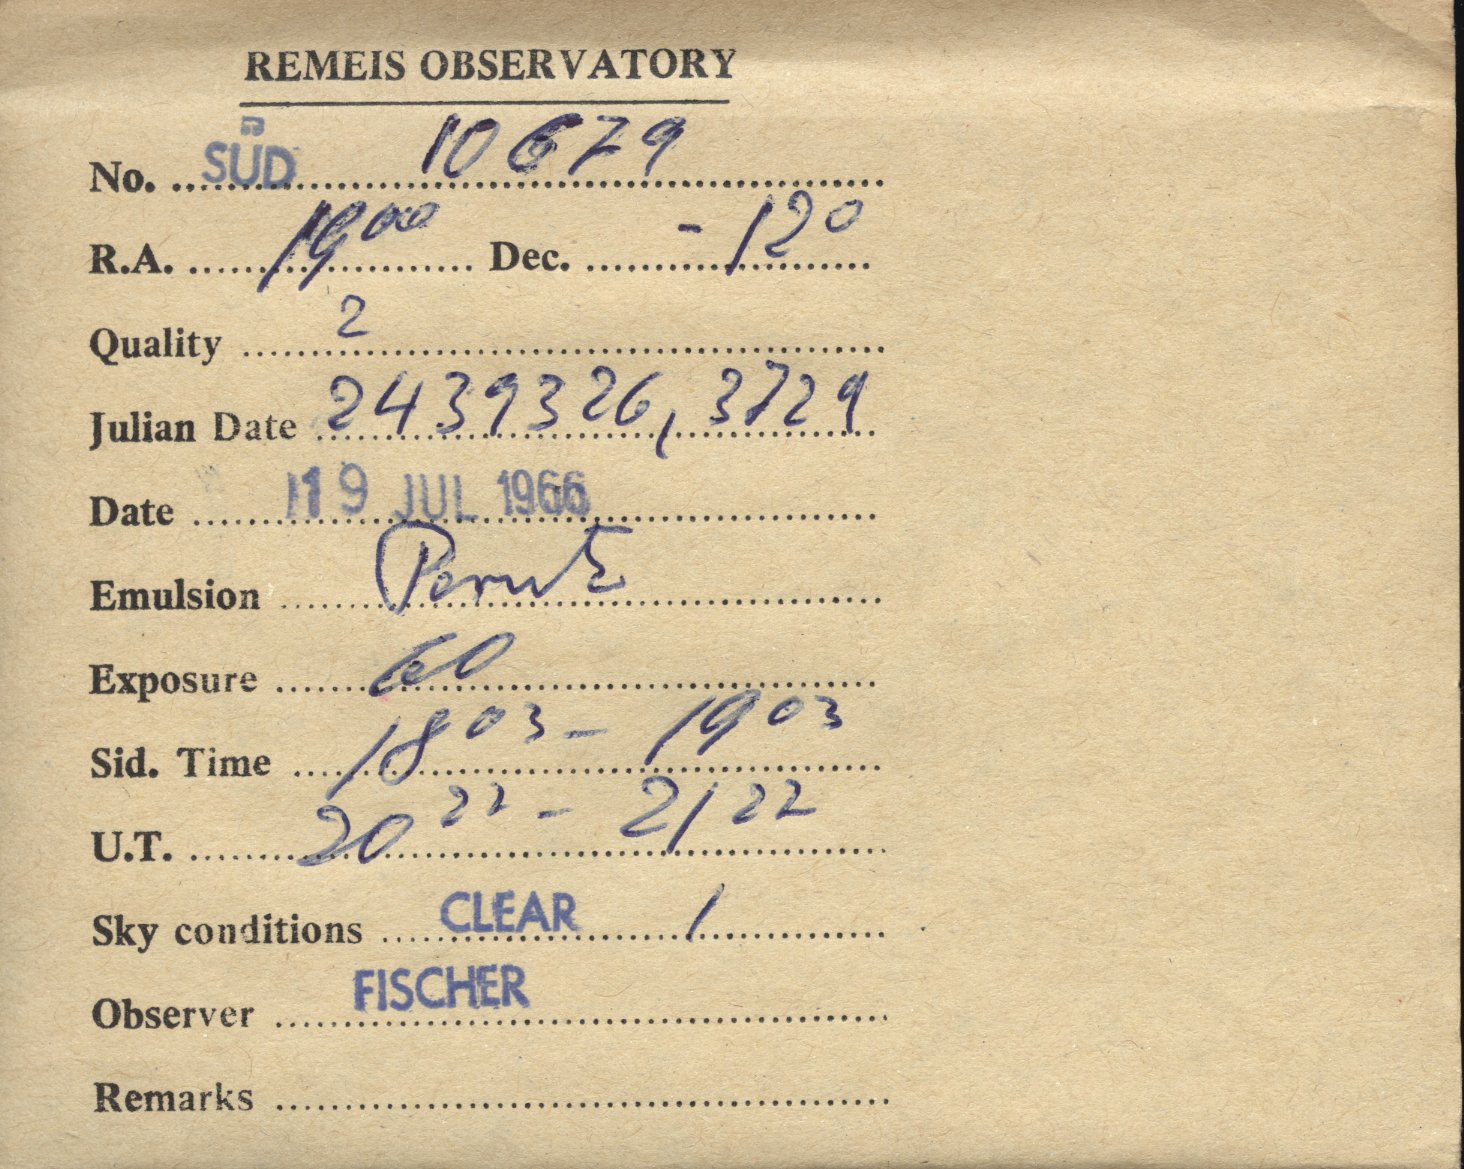 REMEIS OBSERVATORY
No. SÜD 10679
R.A. 19 00 Dec. -12 0
Quality 2
Julian Date 2439326,3729
Date 19 JUL 1966
Emulsion Perutz
Exposure 60
Sid. Time 18 03 - 19 03
U.T. 20 22 - 21 22
Sky conditions CLEAR 1
Observer FISCHER
Remarks